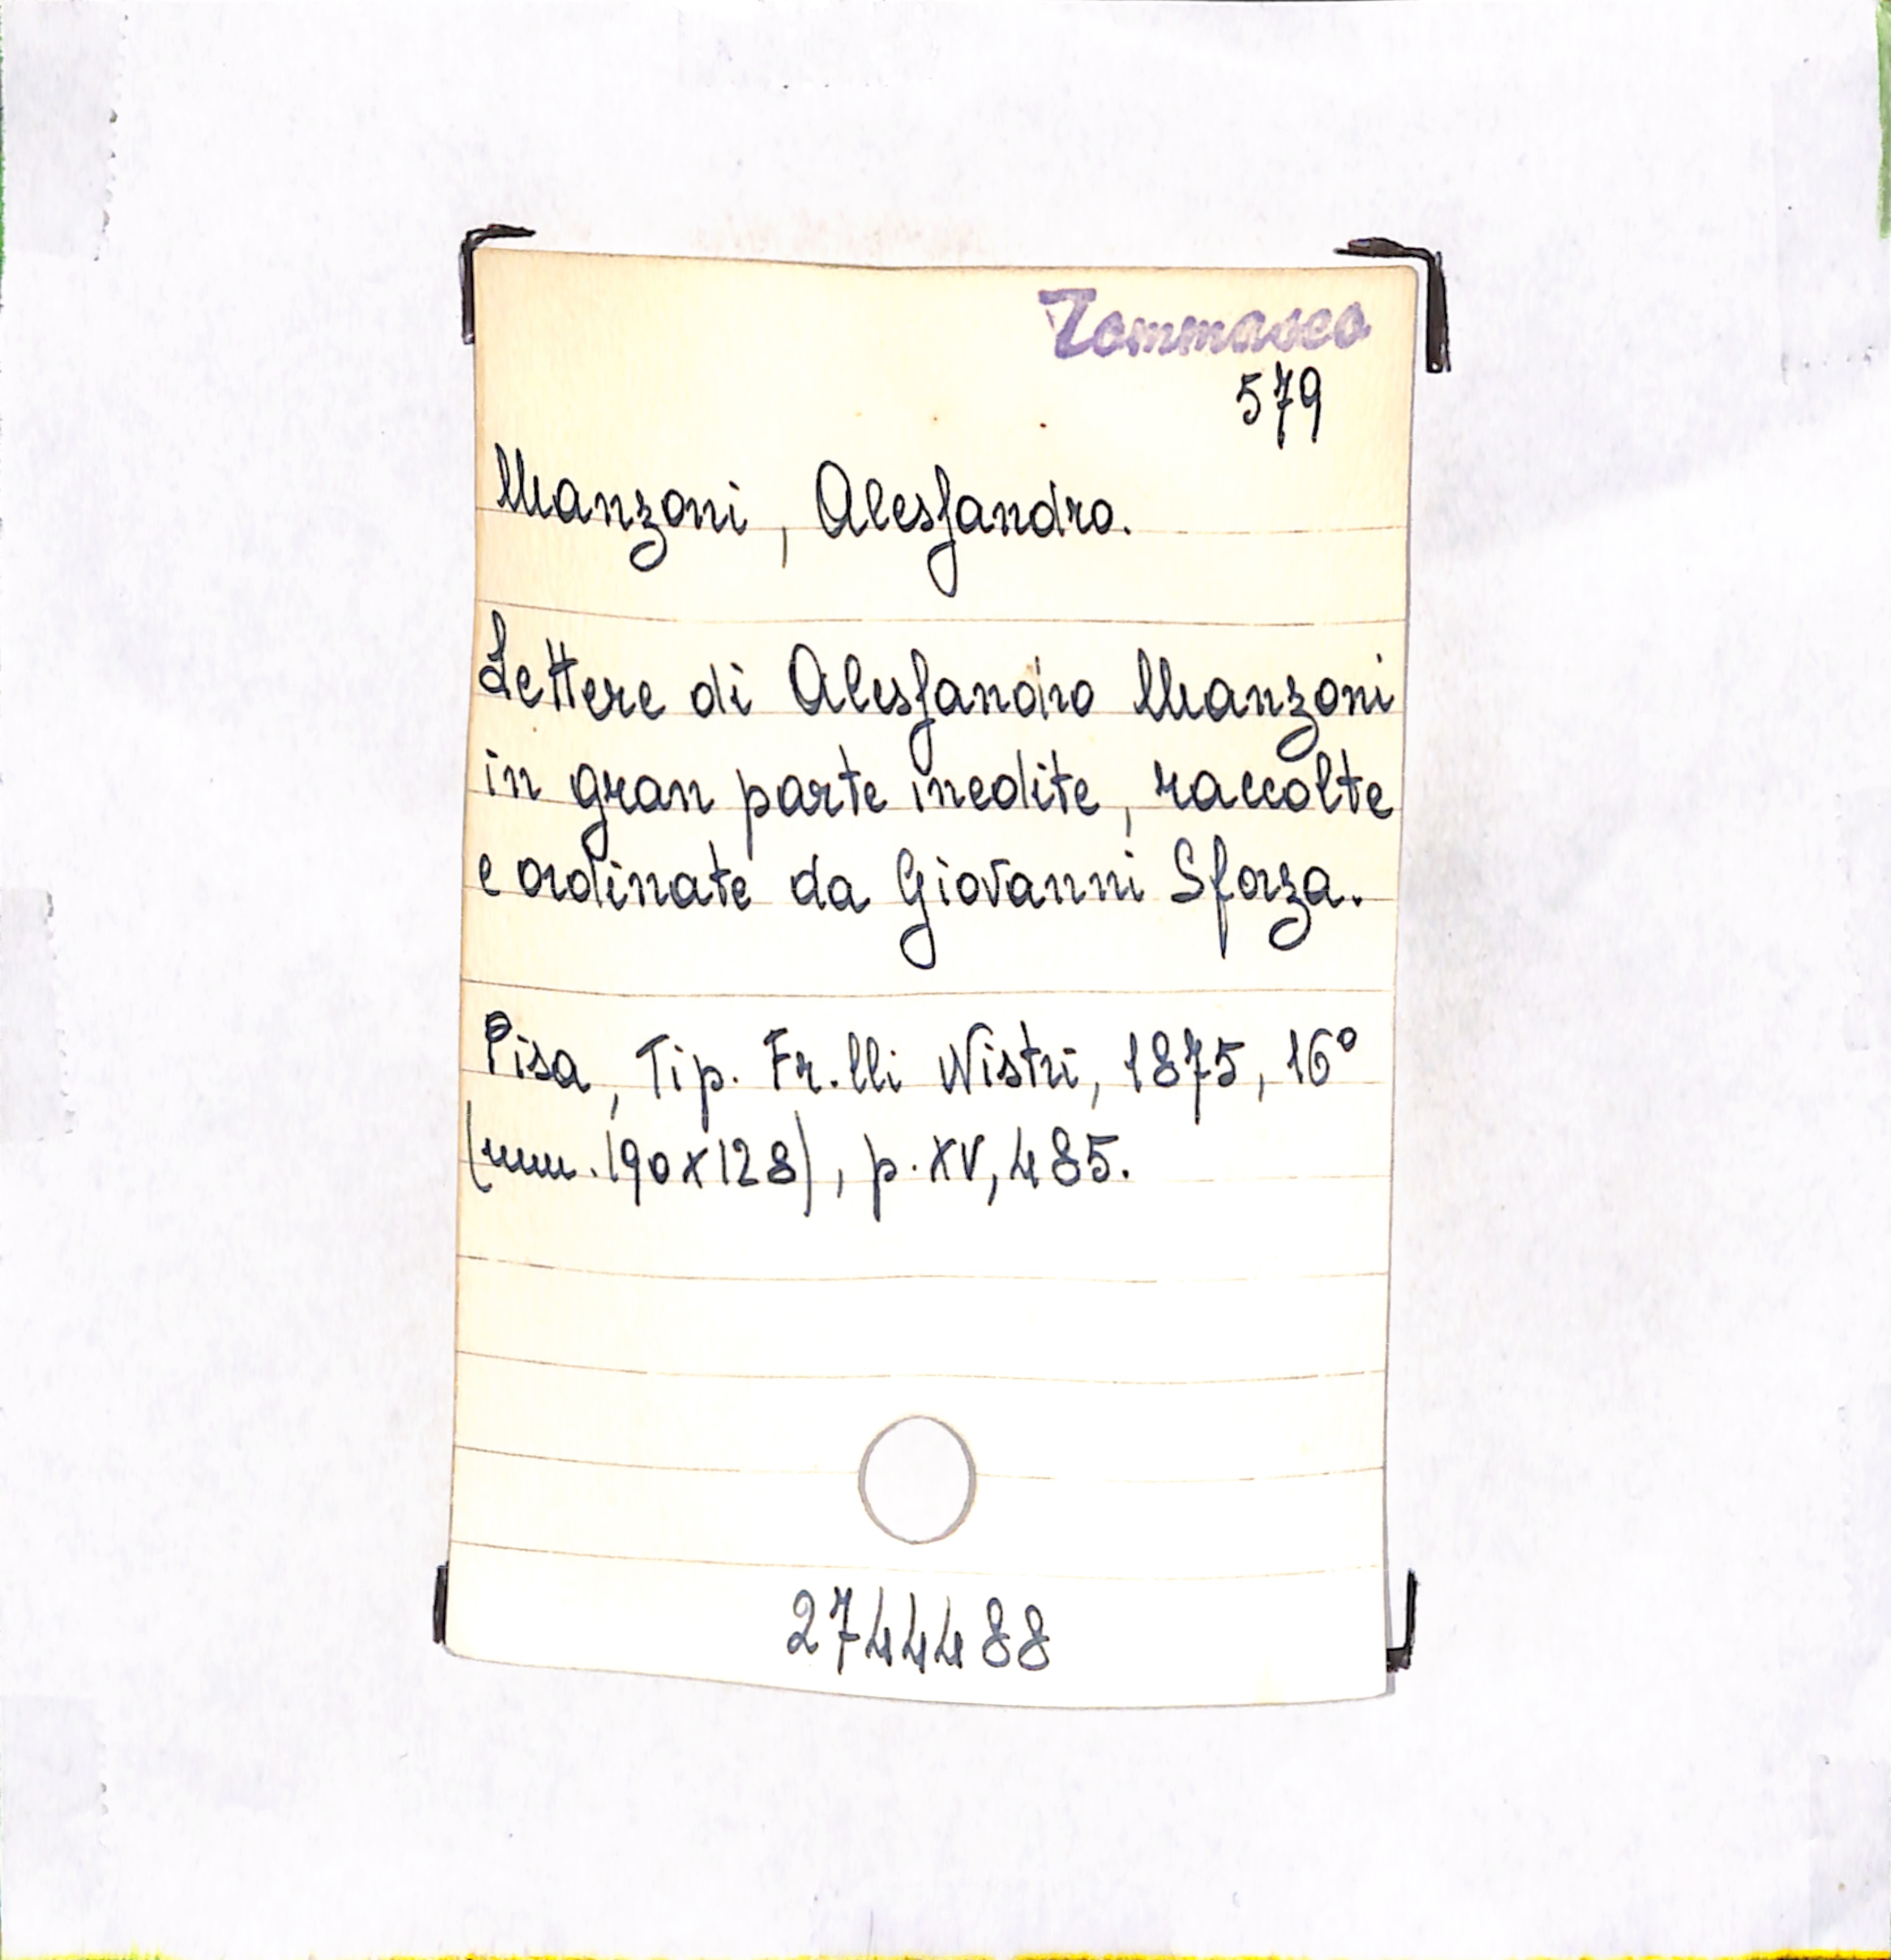 Tommaseo
579
Manzoni, Alessandro.
Lettere di Alessandro Manzoni
in gran parte inedite, raccolte
e ordinate da Giovanni Sforza.
Pisa, Tip. Fr.lli Nistri, 1875, 16°
(mm. 190x128), p. XV, 485.
2744488